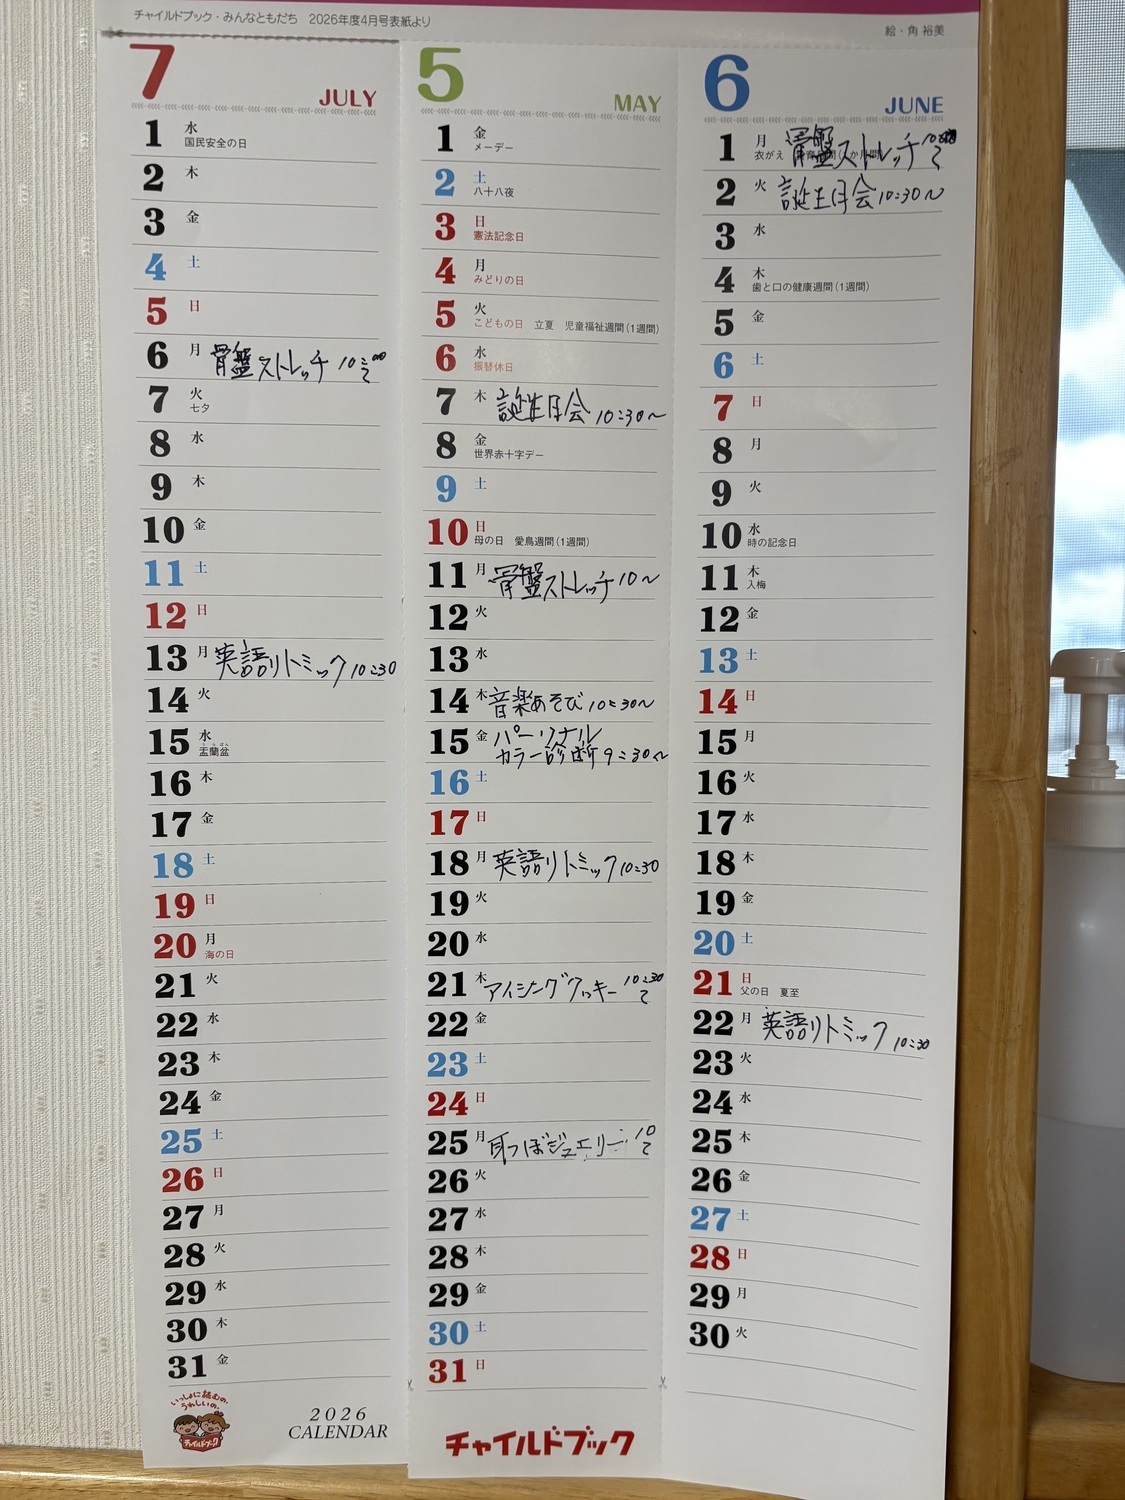 チャイルドブック・みんなともだち 2026年度4月号表紙より
絵・角 裕美
7 JULY
1 水 国民安全の日
2 木
3 金
4 土
5 日
6 月 骨盤ストレッチ 10:00〜
7 火 七夕
8 水
9 木
10 金
11 土
12 日
13 月 英語リトミック 10:30
14 火
15 水 盂蘭盆
16 木
17 金
18 土
19 日
20 月 海の日
21 火
22 水
23 木
24 金
25 土
26 日
27 月
28 火
29 水
30 木
31 金
いっしょに読むの、
うれしいの。
チャイルドブック
2026
CALENDAR
5 MAY
1 金 メーデー
2 土 八十八夜
3 日 憲法記念日
4 月 みどりの日
5 火 こどもの日 立夏 児童福祉週間(1週間)
6 水 振替休日
7 木 誕生日会 10:30〜
8 金 世界赤十字デー
9 土
10 日 母の日 愛鳥週間(1週間)
11 月 骨盤ストレッチ 10〜
12 火
13 水
14 木 音楽あそび 10:30〜
15 金 パーソナル
カラー診断 9:30〜
16 土
17 日
18 月 英語リトミック 10:30
19 火
20 水
21 木 アイシングクッキー 10:30〜
22 金
23 土
24 日
25 月 耳つぼジュエリー 10〜
26 火
27 水
28 木
29 金
30 土
31 日
チャイルドブック
6 JUNE
1 月 骨盤ストレッチ
衣がえ
2 火 誕生日会 10:30〜
3 水
4 木 歯と口の健康週間(1週間)
5 金
6 土
7 日
8 月
9 火
10 水 時の記念日
11 木 入梅
12 金
13 土
14 日
15 月
16 火
17 水
18 木
19 金
20 土
21 日 父の日 夏至
22 月 英語リトミック 10:30
23 火
24 水
25 木
26 金
27 土
28 日
29 月
30 火